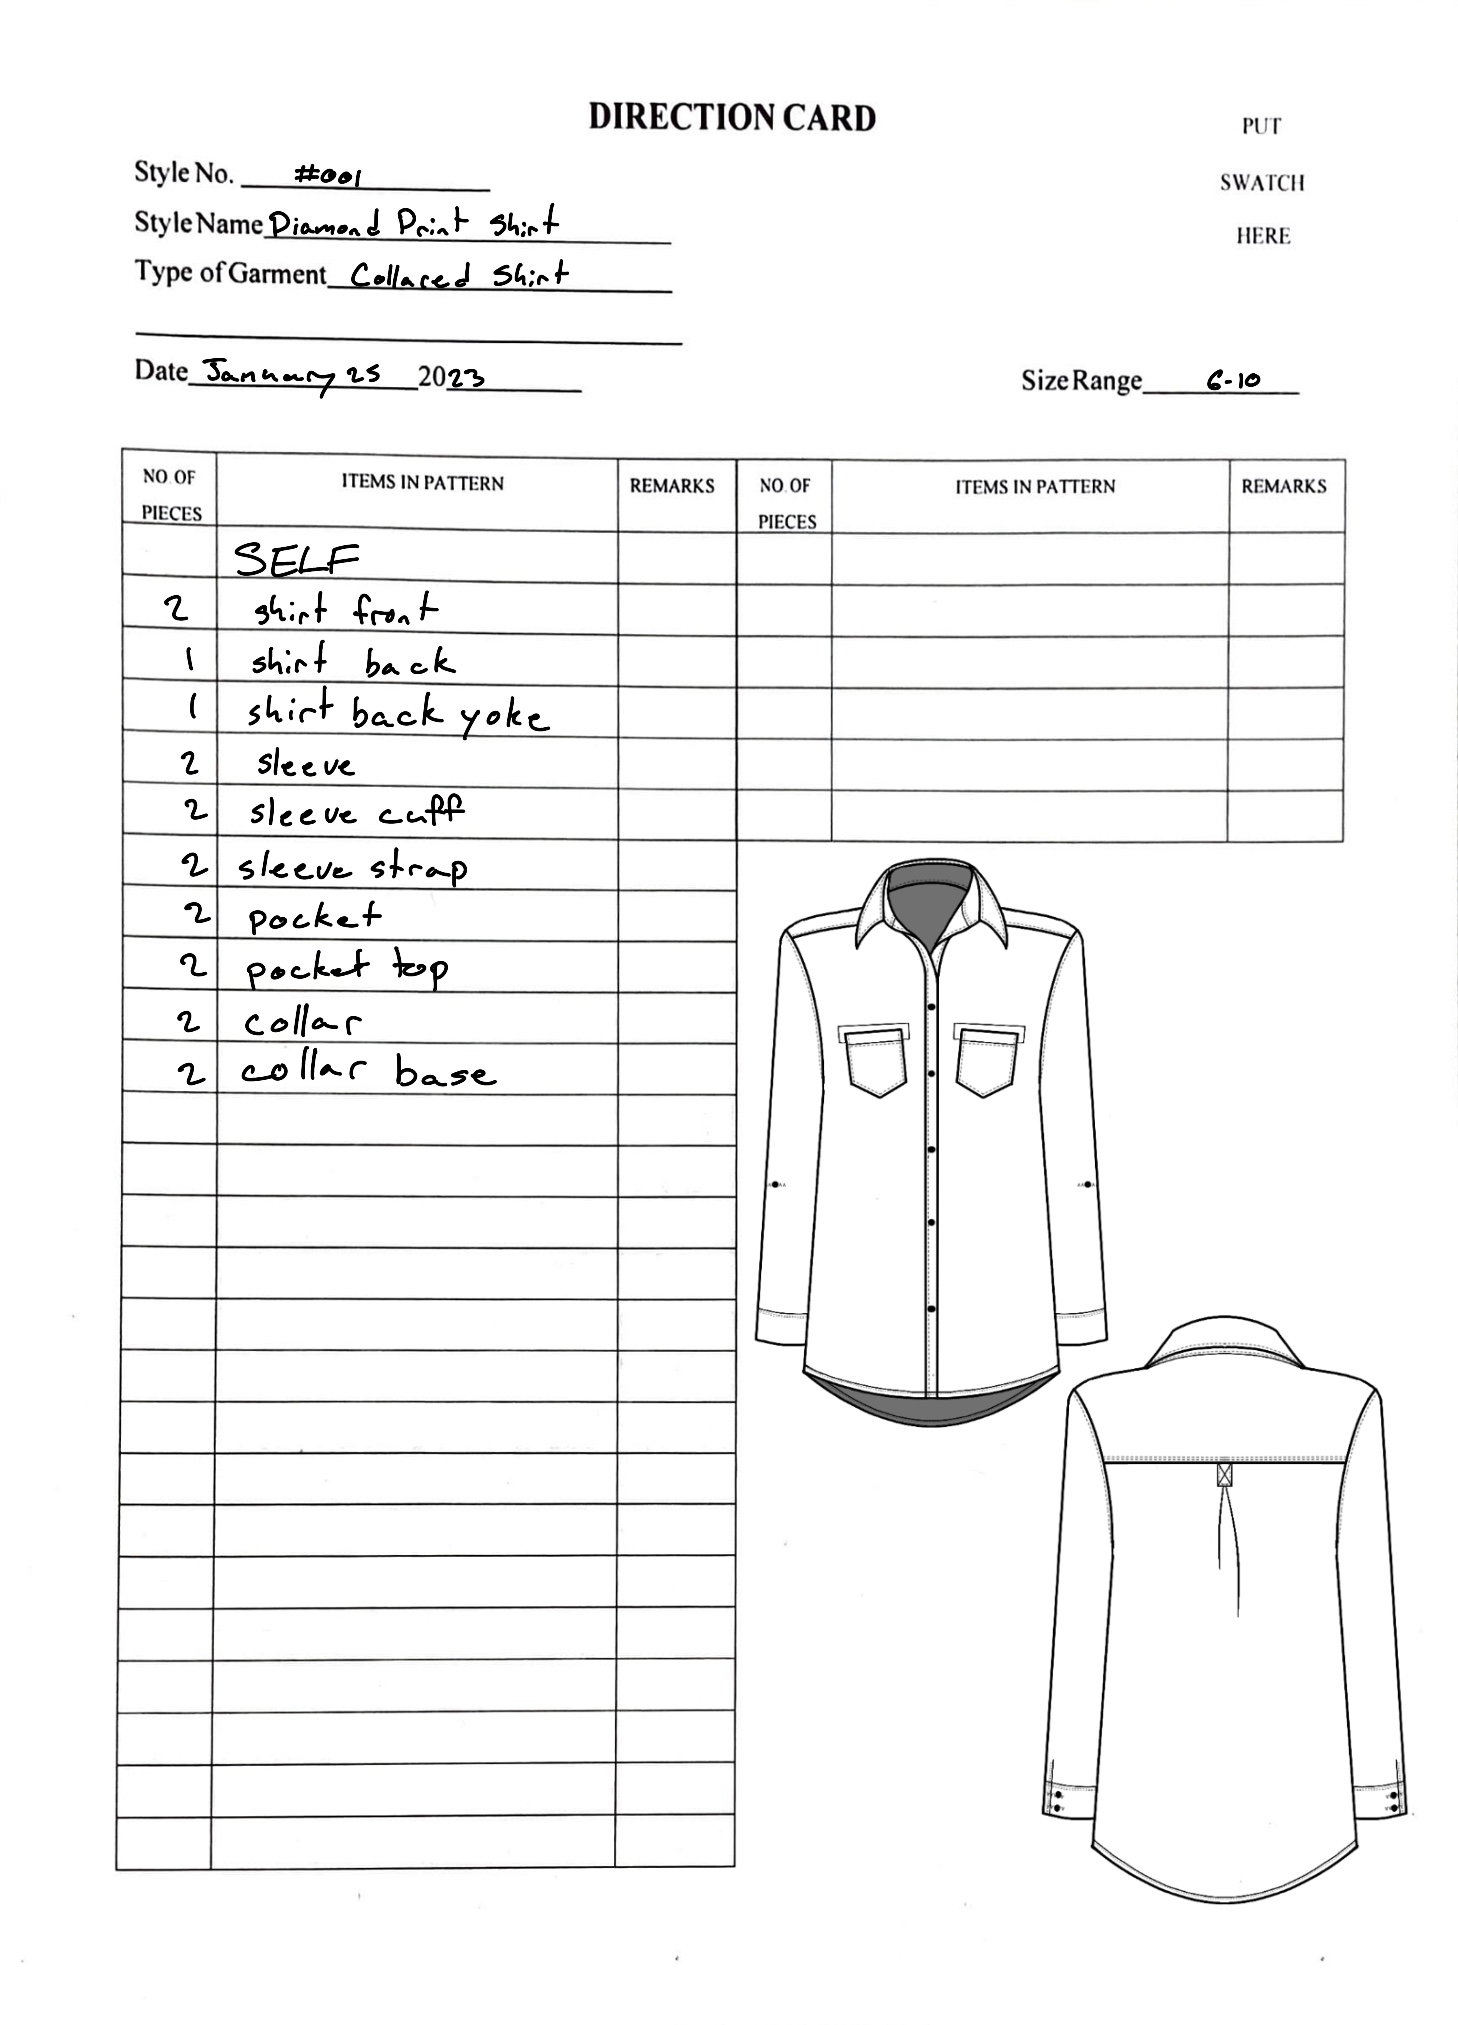 DIRECTION CARD
PUT
SWATCH
HERE
Style No. #001
Style Name Diamond Print Shirt
Type of Garment Collared Shirt
Date January 25 2023
Size Range 6-10
NO. OF PIECES ITEMS IN PATTERN REMARKS NO. OF PIECES ITEMS IN PATTERN REMARKS
SELF
2 shirt front
1 shirt back
1 shirt back yoke
2 sleeve
2 sleeve cuff
2 sleeve strap
2 pocket
2 pocket top
2 collar
2 collar base